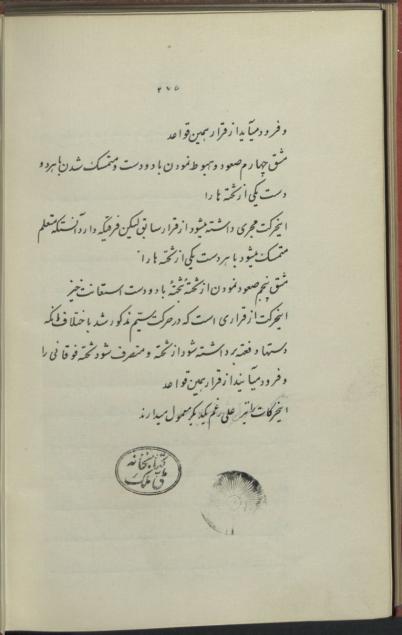 ۲۷۵
و فرود میآید از قرار همین قواعد
مشق چهارم صعود و هبوط نمودن با دو دست و متمسک شدن با هر دو
دست یکی از تخته ها را
اینحرکت مجری داشته میشود از قرار سابق لیکن فرقیکه دارد آنستکه متعلم
متمسک میشود با هر دست یکی از تخته ها را
مشق پنجم صعود نمودن از تخته بتخته با دو دست استعانت خیز
اینحرکت از قراری است که در حرکت ذکور شد با اختلاف آنکه
دستها دفعة برداشته شود از تخته و متصرف شود تخته فوقانی را
و فرود میآیند از قرار همین قواعد
اینحرکات را نیز علی رغم یکدیگر معمول میدارند
کتابخانه
ملی ملک